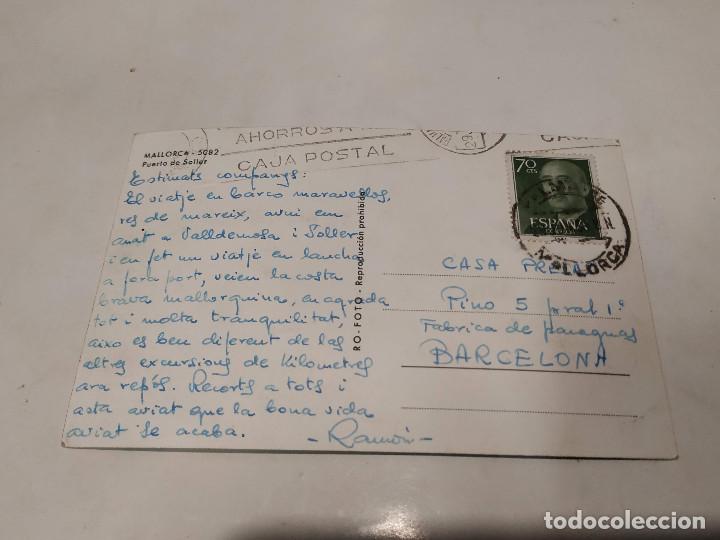 AHORROS
CAJA POSTAL
MALLORCA - 5082
Puerto de Soller
70
CTS
ESPAÑA
MALLORCA
Estimats companys:
El viatje en barco maravellos,
res de mareix, avui em
anat a Valldemosa i Soller
i en fet un viatje en lancha
a fora port, veien la costa
brava mallorquina, en agrada
tot i molta tranquilitat,
aixo es ben diferent de las
altres excursions de Kilometres
ara repós. Recorts a tots i
asta aviat que la bona vida
aviat se acaba. - Ramón -
RO-FOTO - Reproducción prohibida
CASA
Pino 5 pral 1º
Fabrica de paraguas
BARCELONA
todocoleccion